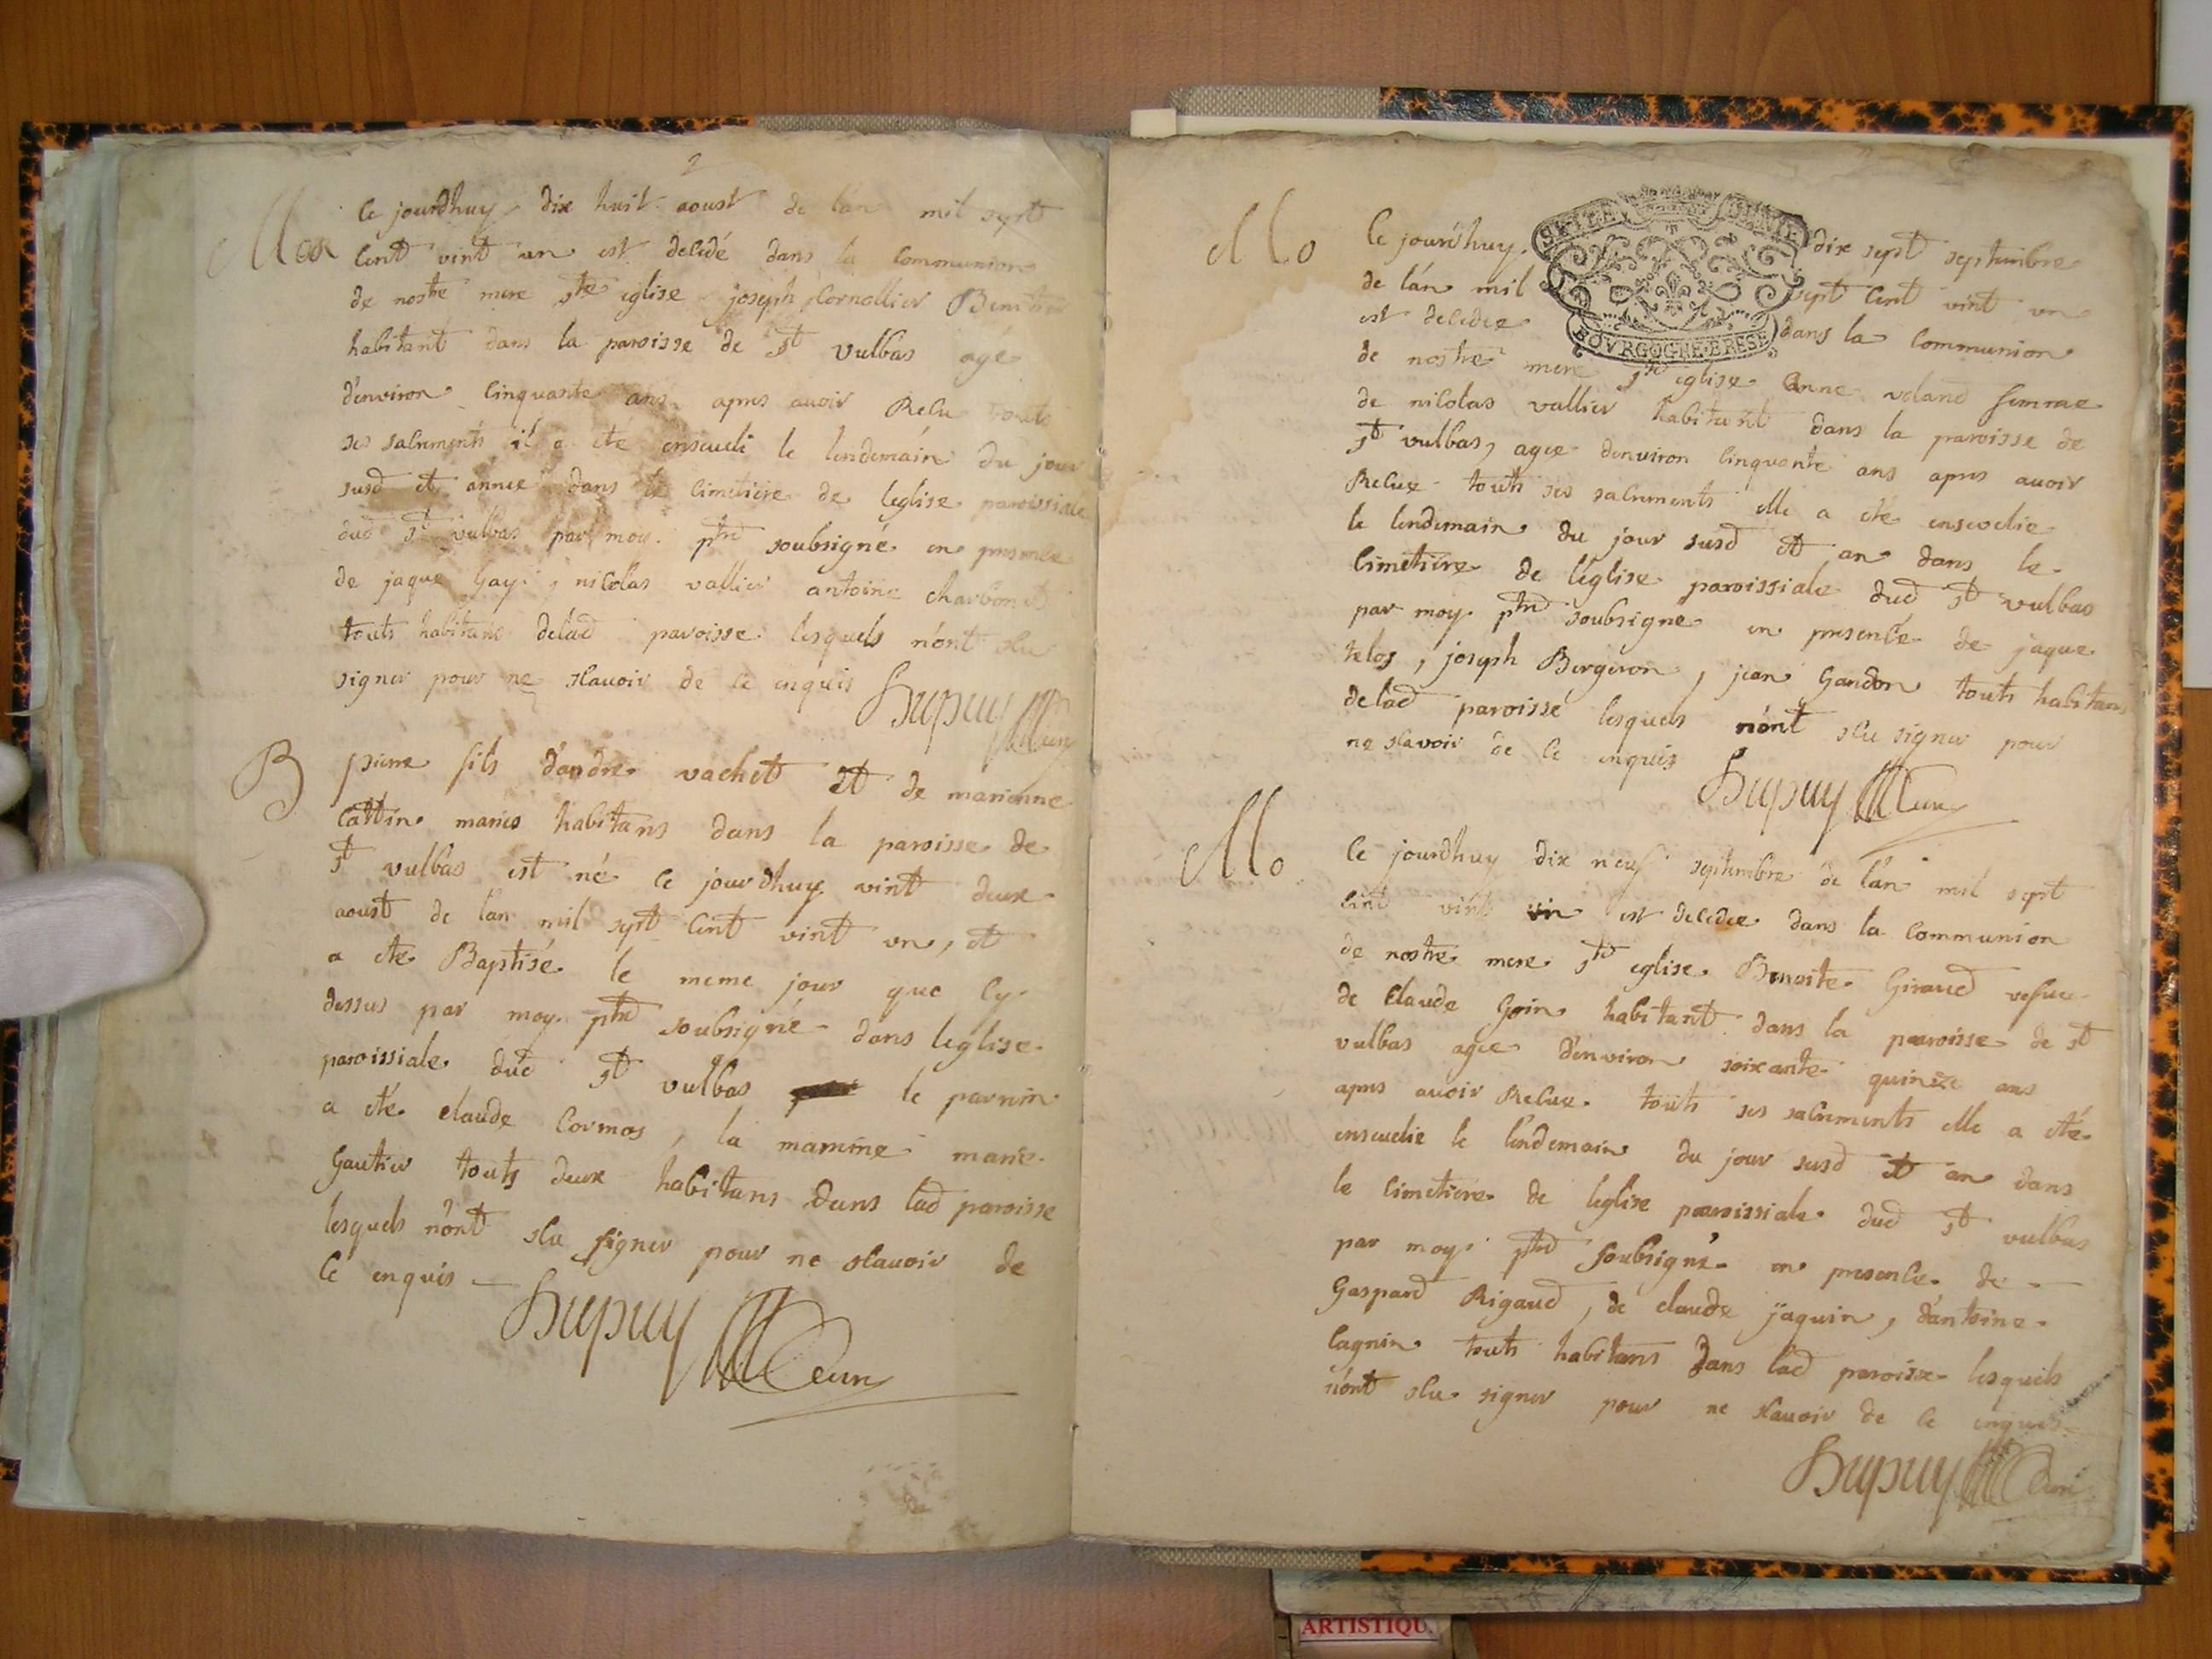 2
Mor
Ce jourdhuy dix huit aoust de l'an mil sept
Cent vint un est decedé dans la Communion
de nostre mere ste eglise joseph Cornollier
habitant dans la paroisse de st Vulbas agé
d'environ Cinquante ans apres avoir Recu touts
ses sacrements il a eté enseveli le lendemain du jour
susd et année dans le Cimetiere de leglise paroissiale
dud st vulbas par moy ptre soubsigné en presence
de jaque Gay, nicolas vallier antoine charbonet
touts habitans delad paroisse lesquels n'ont scu
signer pour ne scavoir de ce enquis
Dupuy Curé
B
pierre fils d'andre vachet et de marianne
Cattin maries habitans dans la paroisse de
st vulbas est né ce jourdhuy vint deux
aoust de lan mil sept Cent vint un, et
a ete Baptisé le meme jour que Cy
dessus par moy ptre soubsigné dans leglise
paroissiale dud st vulbas le parrin
a eté claude Cormos, la marrine marie
Gautier touts deux habitans dans lad paroisse
lesquels n'ont scu signer pour ne scavoir de
Ce enquis
Dupuy Curé
Mo
BOVRGOGNE BRESSE
Ce jourd'huy dix sept septembre
de l'an mil sept Cent vint un
est decedee dans la Communion
de nostre mere ste eglise anne voland femme
de nicolas vallier habitant dans la paroisse de
st vulbas, agee denviron Cinquante ans apres avoir
Recue touts ses sacrements elle a eté ensevelie
le lendemain du jour susd et an dans le
Cimetiere de l'eglise paroissiale dud st vulbas
par moy ptre soubsigné en presence de jaque
telos, joseph Bergeron, jean Gandon touts habitans
delad paroisse lesquels n'ont scu signer pour
ne scavoir de Ce enquis
Dupuy Curé
Mo
Ce jourdhuy dix neuf septembre de l'an mil sept
Cent vint un est decedee dans la Communion
de nostre mere ste eglise Benoite Giraud vefue
de Claude Goin habitant dans la paroisse de st
vulbas agee d'environ soixante quinze ans
apres avoir Recue touts ses sacrements elle a eté
ensevelie le lendemain du jour susd et an dans
le Cimetiere de leglise paroissiale dud st vulbas
par moy ptre soubsigné en presence de
Gaspard Rigaud, de claude jaquin, d'antoine
Cagnin touts habitans dans lad paroisse lesquels
n'ont scu signer pour ne scavoir de Ce enquis
Dupuy Curé
ARTISTIQU